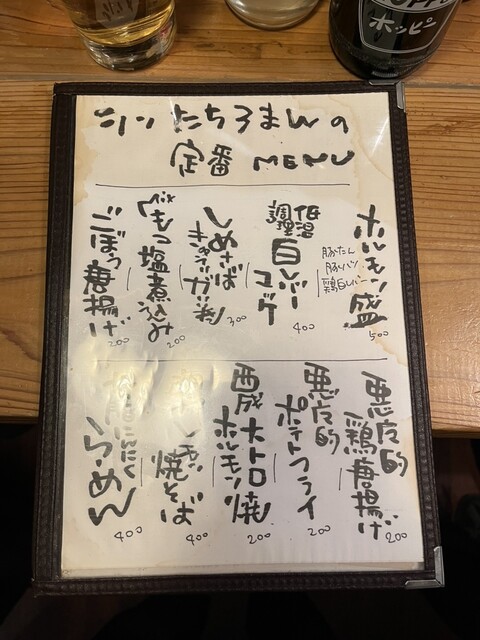 ホッピー
たちろまんの
定番 MENU
ホルモン盛
豚たん
豚ハツ
鶏白レバー
500
低温
調理
白レバー
ユッケ
400
しめさば
ガリ
300
もつ塩煮込み
200
ごぼう唐揚げ
200
悪魔的
鶏唐揚げ
200
悪魔的
ポテトフライ
200
大トロ焼
ホルモン
200
焼そば
400
にんにく
らーめん
400